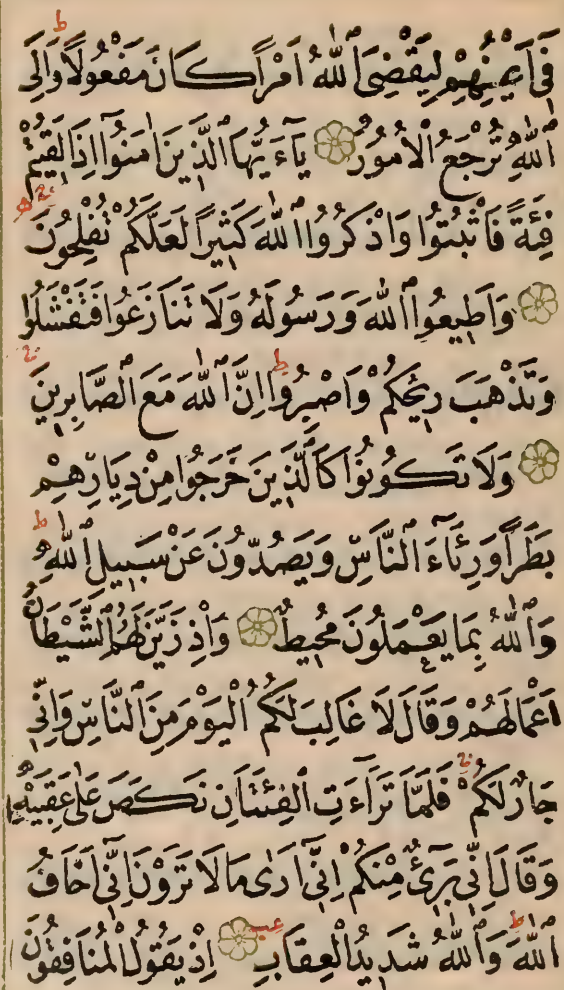 فِٓى اَعْيُنِهِمْ لِيَقْضِىَ اللّٰهُ اَمْرًا كَانَ مَفْعُولًا ط وَاِلَى
اللّٰهِ تُرْجَعُ الْاُمُورُ ۝ يَٓاءَيُّهَا الَّذِينَ اٰمَنُٓوا اِذَا لَقِيتُمْ
فِئَةً فَاثْبُتُوا وَاذْكُرُوا اللّٰهَ كَثِيرًا لَعَلَّكُمْ تُفْلِحُونَ
۝ وَاَطِيعُوا اللّٰهَ وَرَسُولَهُ وَلَا تَنَازَعُوا فَتَفْشَلُوا
وَتَذْهَبَ رِيحُكُمْ وَاصْبِرُوا ط اِنَّ اللّٰهَ مَعَ الصَّابِرِينَ
۝ وَلَا تَكُونُوا كَالَّذِينَ خَرَجُوا مِنْ دِيَارِهِمْ
بَطَرًا وَرِئَٓاءَ النَّاسِ وَيَصُدُّونَ عَنْ سَبِيلِ اللّٰهِ ط
وَاللّٰهُ بِمَا يَعْمَلُونَ مُحِيطٌ ۝ وَاِذْ زَيَّنَ لَهُمُ الشَّيْطَانُ
اَعْمَالَهُمْ وَقَالَ لَا غَالِبَ لَكُمُ الْيَوْمَ مِنَ النَّاسِ وَاِنِّى
جَارٌ لَكُمْ فَلَمَّا تَرَٓاءَتِ الْفِئَتَانِ نَكَصَ عَلٰى عَقِبَيْهِ
وَقَالَ اِنِّى بَرِٓىءٌ مِنْكُمْ اِنِّٓى اَرٰى مَا لَا تَرَوْنَ اِنِّٓى اَخَافُ
اللّٰهَ ط وَاللّٰهُ شَدِيدُ الْعِقَابِ ۝ اِذْ يَقُولُ الْمُنَافِقُونَ